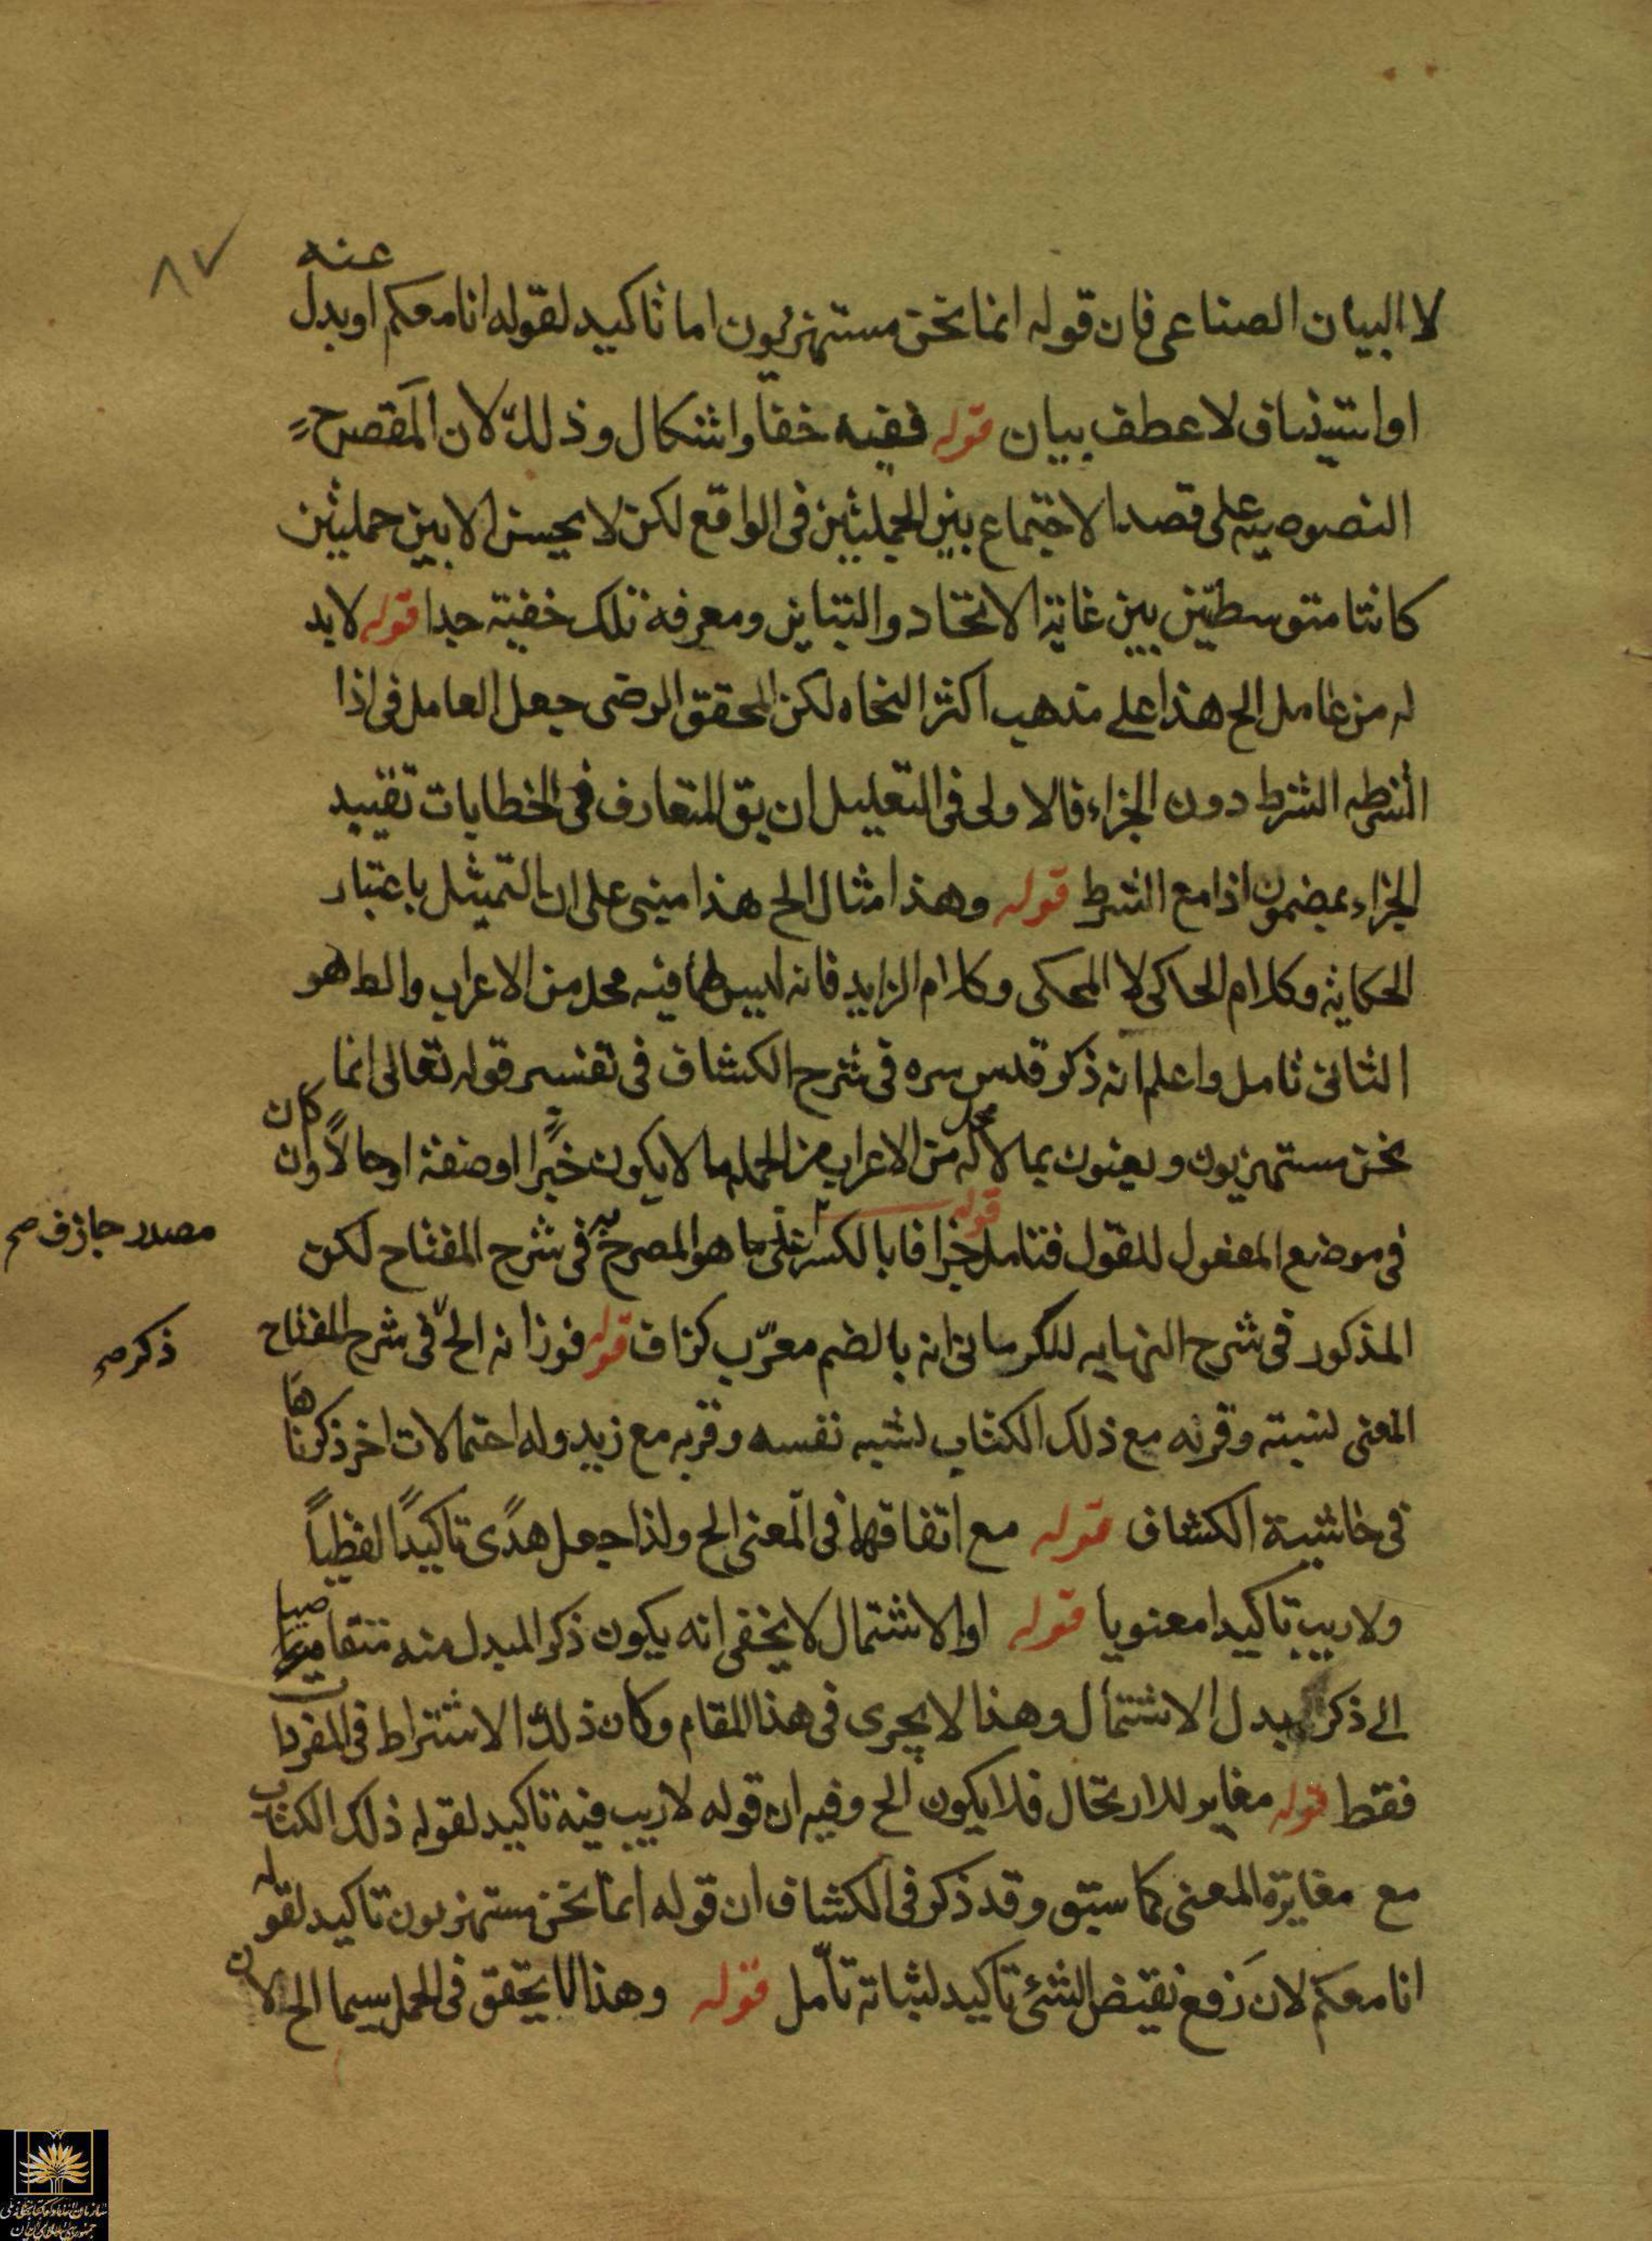 لا البيان الصناعى فان قوله انما نحن مستهزئون اما تاكيد لقوله انا معكم او بدل عنه
او استيناف لا عطف بيان قوله ففيه خفا واشكال وذلك لان المقصح
النصوصيه على قصد الاجتماع بين الجملتين فى الواقع لكن لا يحسن الا بين جملتين
كانتا متوسطتين بين غاية الاتحاد والتباين ومعرفه تلك خفية جدا قوله لابد
له من عامل الح هذا على مذهب اكثر النحاه لكن المحقق الرضى جعل العامل فى اذا
الشرطيه الشرط دون الجزاء فالاولى فى التعليل ان يق المتعارف فى الخطابات تقييد
الجزاء بمضمون اذا مع الشرط قوله وهذا مثال الح هذا مبنى على ان التمثيل باعتبار
الحكاية وكلام الحاكى لا المحكى وكلام الزايد فانه ليس لهما فيه محل من الاعراب والط هو
الثانى تامل واعلم انه ذكر قدس سره فى شرح الكشاف فى تفسير قوله تعالى انما
نحن مستهزيون ويعنون بما لا محل له من الاعراب من الجمله ما لا يكون خبرا او صفة او حالا وان كان
فى موضع المفعول للقول فتامل قوله جزافا بالكسر على ما هو المصرح به فى شرح المفتاح لكن
مصدر جازف صح
المذكور فى شرح النهايه للكرمانى انه بالضم معرب كزاف قوله فوزانه الح فى شرح المفتاح
ذكر صح
المعنى نسبته وقرنه مع ذلك الكتاب نسبه نفسه وقربه مع زيد وله احتمالات اخر ذكرناها
فى حاشية الكشاف قوله مع اتفاقهما فى المعنى الح ولذا جعل هدى تاكيدا لفظيا
ولا ريب تاكيدا معنويا قوله او الاشتمال لا يخفى انه يكون ذكر المبدل منه متقاضيا
الى ذكر بدل الاشتمال وهذا لا يجرى فى هذا المقام وكان ذلك الاشتراط فى المفردات
فقط قوله مغاير للارتحال فلا يكون الح وفيه ان قوله لا ريب فيه تاكيد لقوله ذلك الكتاب
مع مغايرة المعنى كما سبق وقد ذكر فى الكشاف ان قوله انما نحن مستهزيون تاكيد لقوله
انا معكم لان رفع نقيض الشئ تاكيد لثباته تامل قوله وهذا لا يتحقق فى الجمل سيما الح لان
٨٧